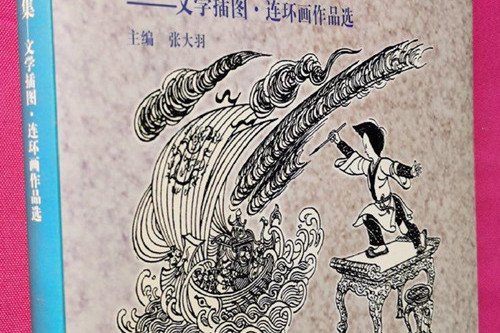 ——文学插图·连环画作品选
主编 张大羽
集 文学插图·连环画作品选